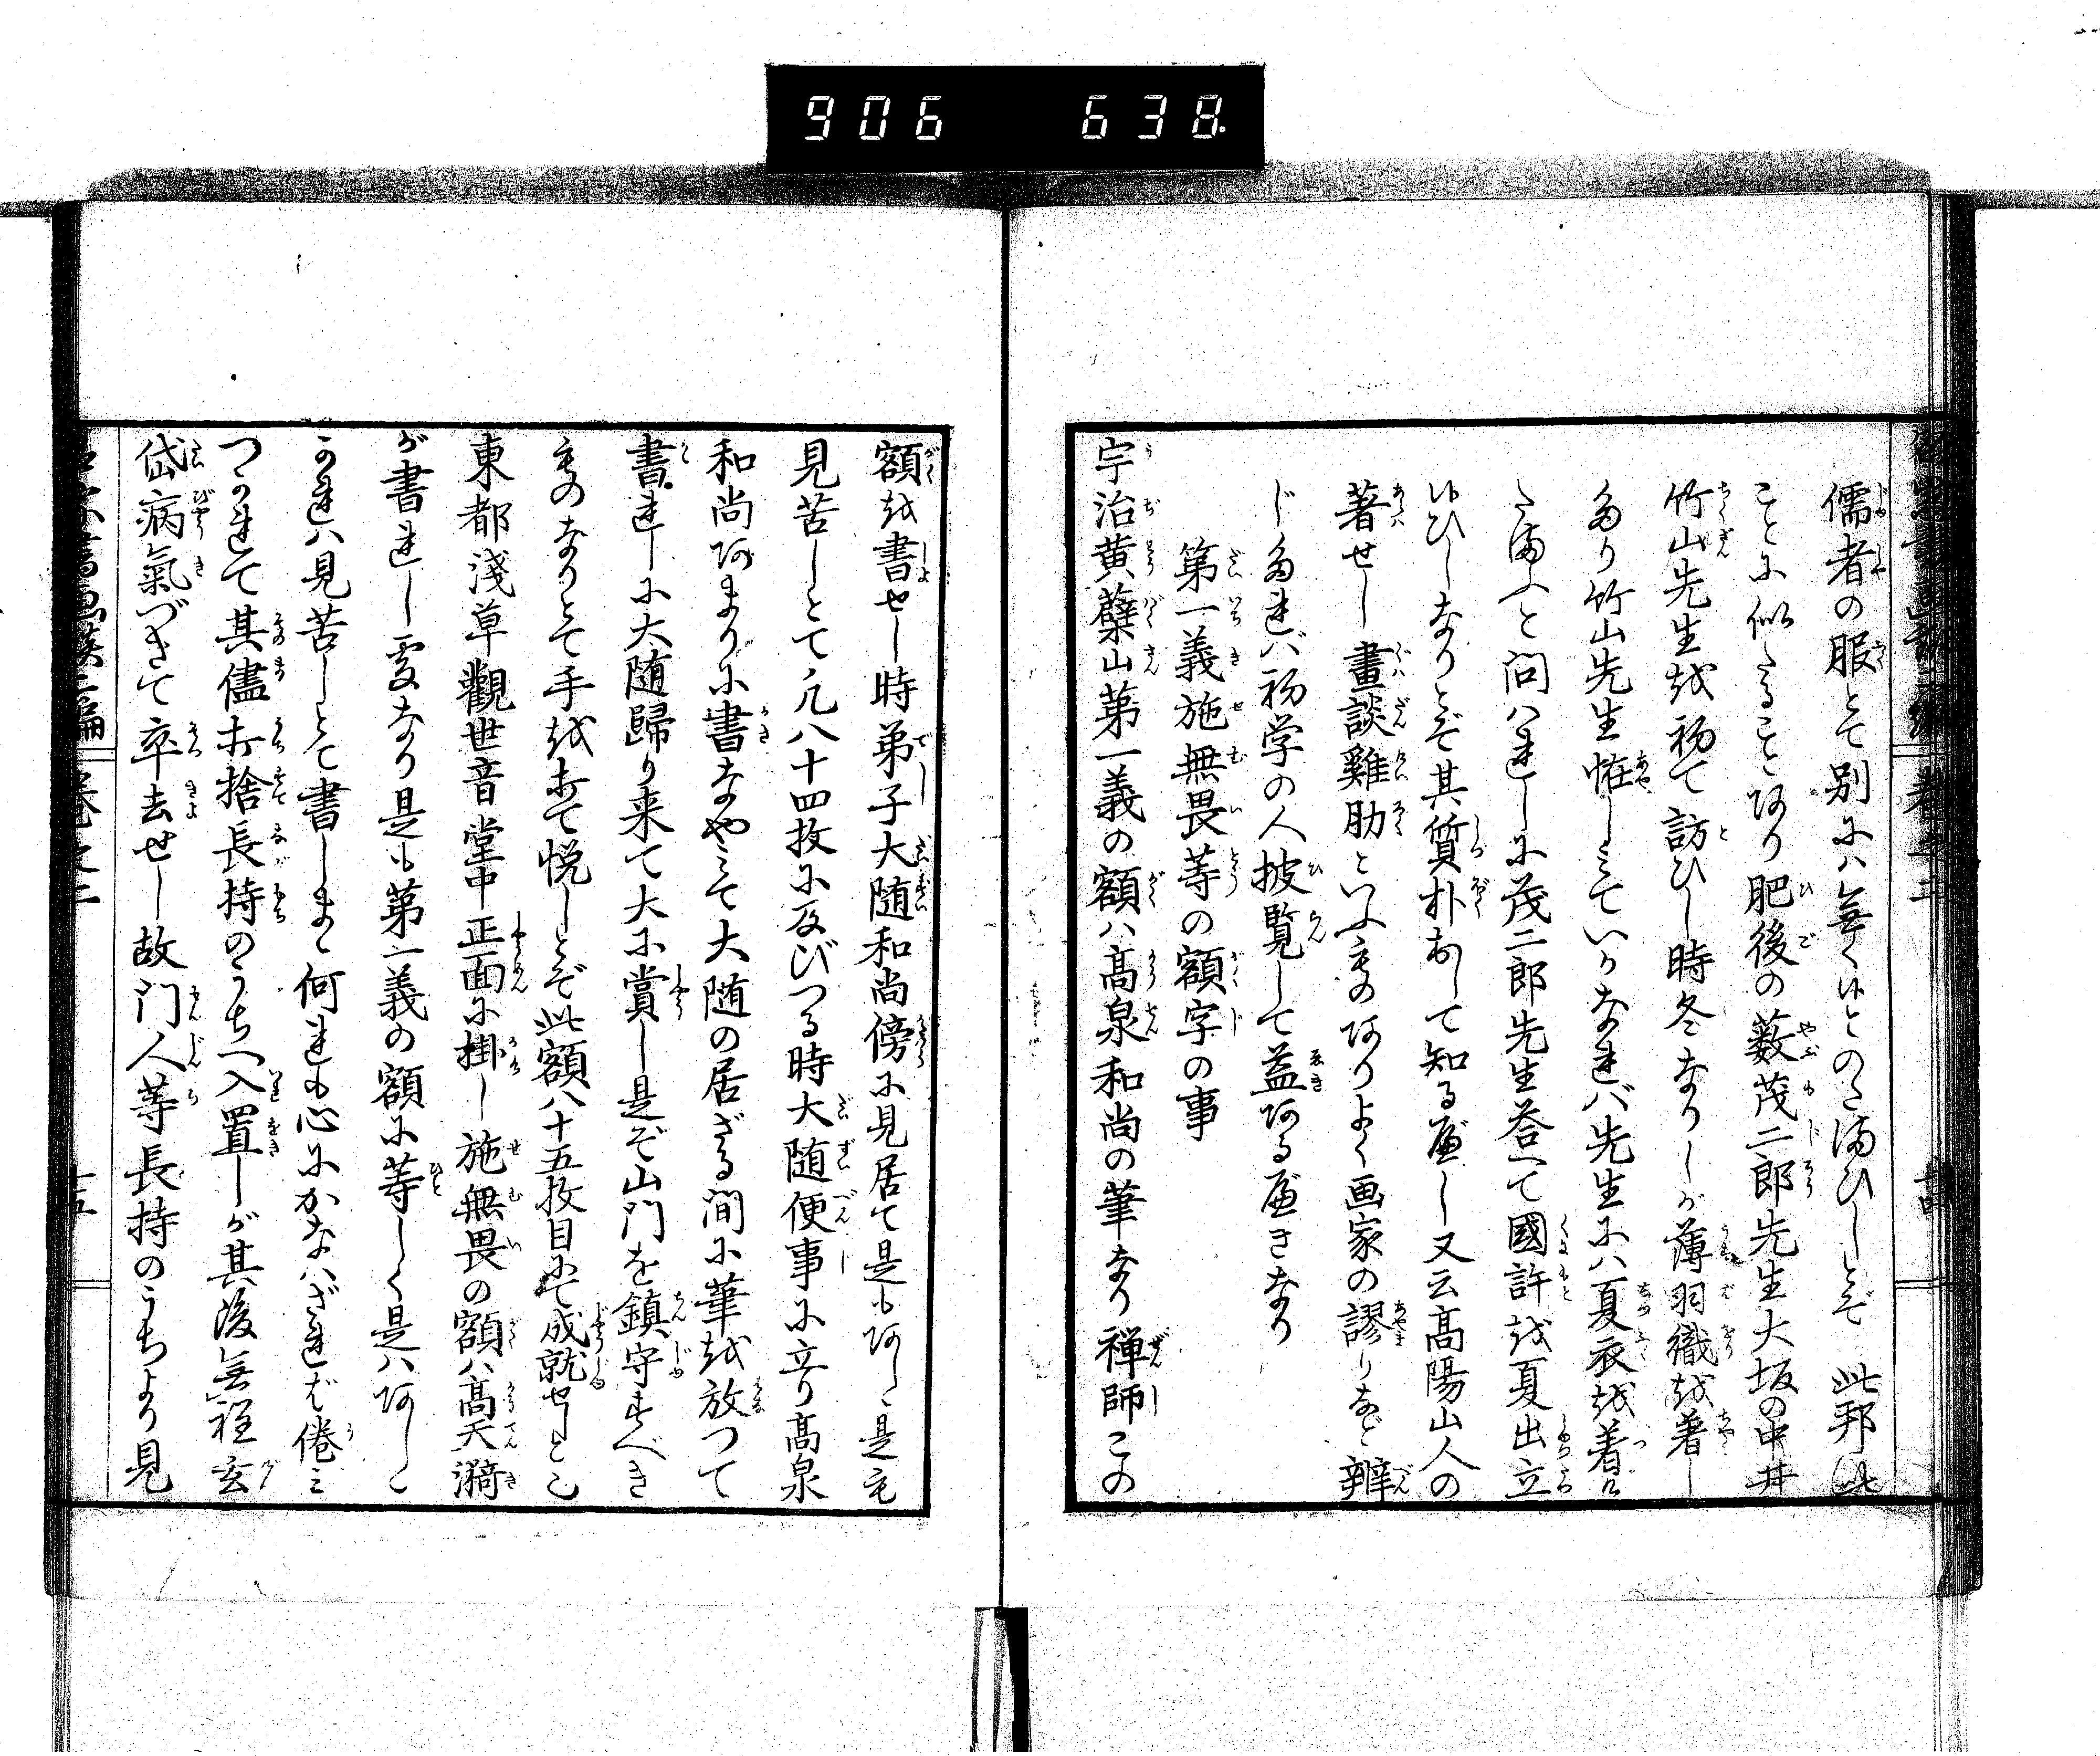 906 638
儒者の服とて別にハ無く候とのたまひしとぞ 此邦此
ことに似たることあり肥後の藪茂二郎先生大坂の中井
竹山先生を初て訪ひし時冬なりしが薄羽織を著し
たり竹山先生怪しミていかなれバ先生にハ夏衣を着し
たまふと問ハれしに茂二郎先生答へて國許を夏出立
候ひしなりとぞ其質朴おして知る應し又云高陽山人の
著せし畫談雞肋といふものありよく画家の謬りなど辨
じたれバ初学の人披覧して益ある應きなり
第一義施無畏等の額字の事
宇治黄蘗山第一義の額ハ髙泉和尚の筆なり禅師この
額を書せし時弟子大随和尚傍に見居て是もあしゝ是も
見苦しとて凡八十四枚に及びつる時大随便事に立り髙泉
和尚あまりに書なやミて大随の居ざる间に筆を放つて
書れしに大随歸り来て大に賞し是ぞ山门を鎮守すべき
ものなりとて手を打て悦しとぞ此額八十五枚目にて成就せしとも
東都淺草觀世音堂中正面に掛し施無畏の額ハ髙天漪
が書れし處なり是も第一義の額に等しく是ハあしゝ
かれハ見苦しとて書しまゝ何れも心にかなハざれバ倦ミ
つかれて其儘打捨長持のうちへ入置しが其後無程玄
岱病氣づきて卒去せし故门人等長持のうちより見
巻之二
十五